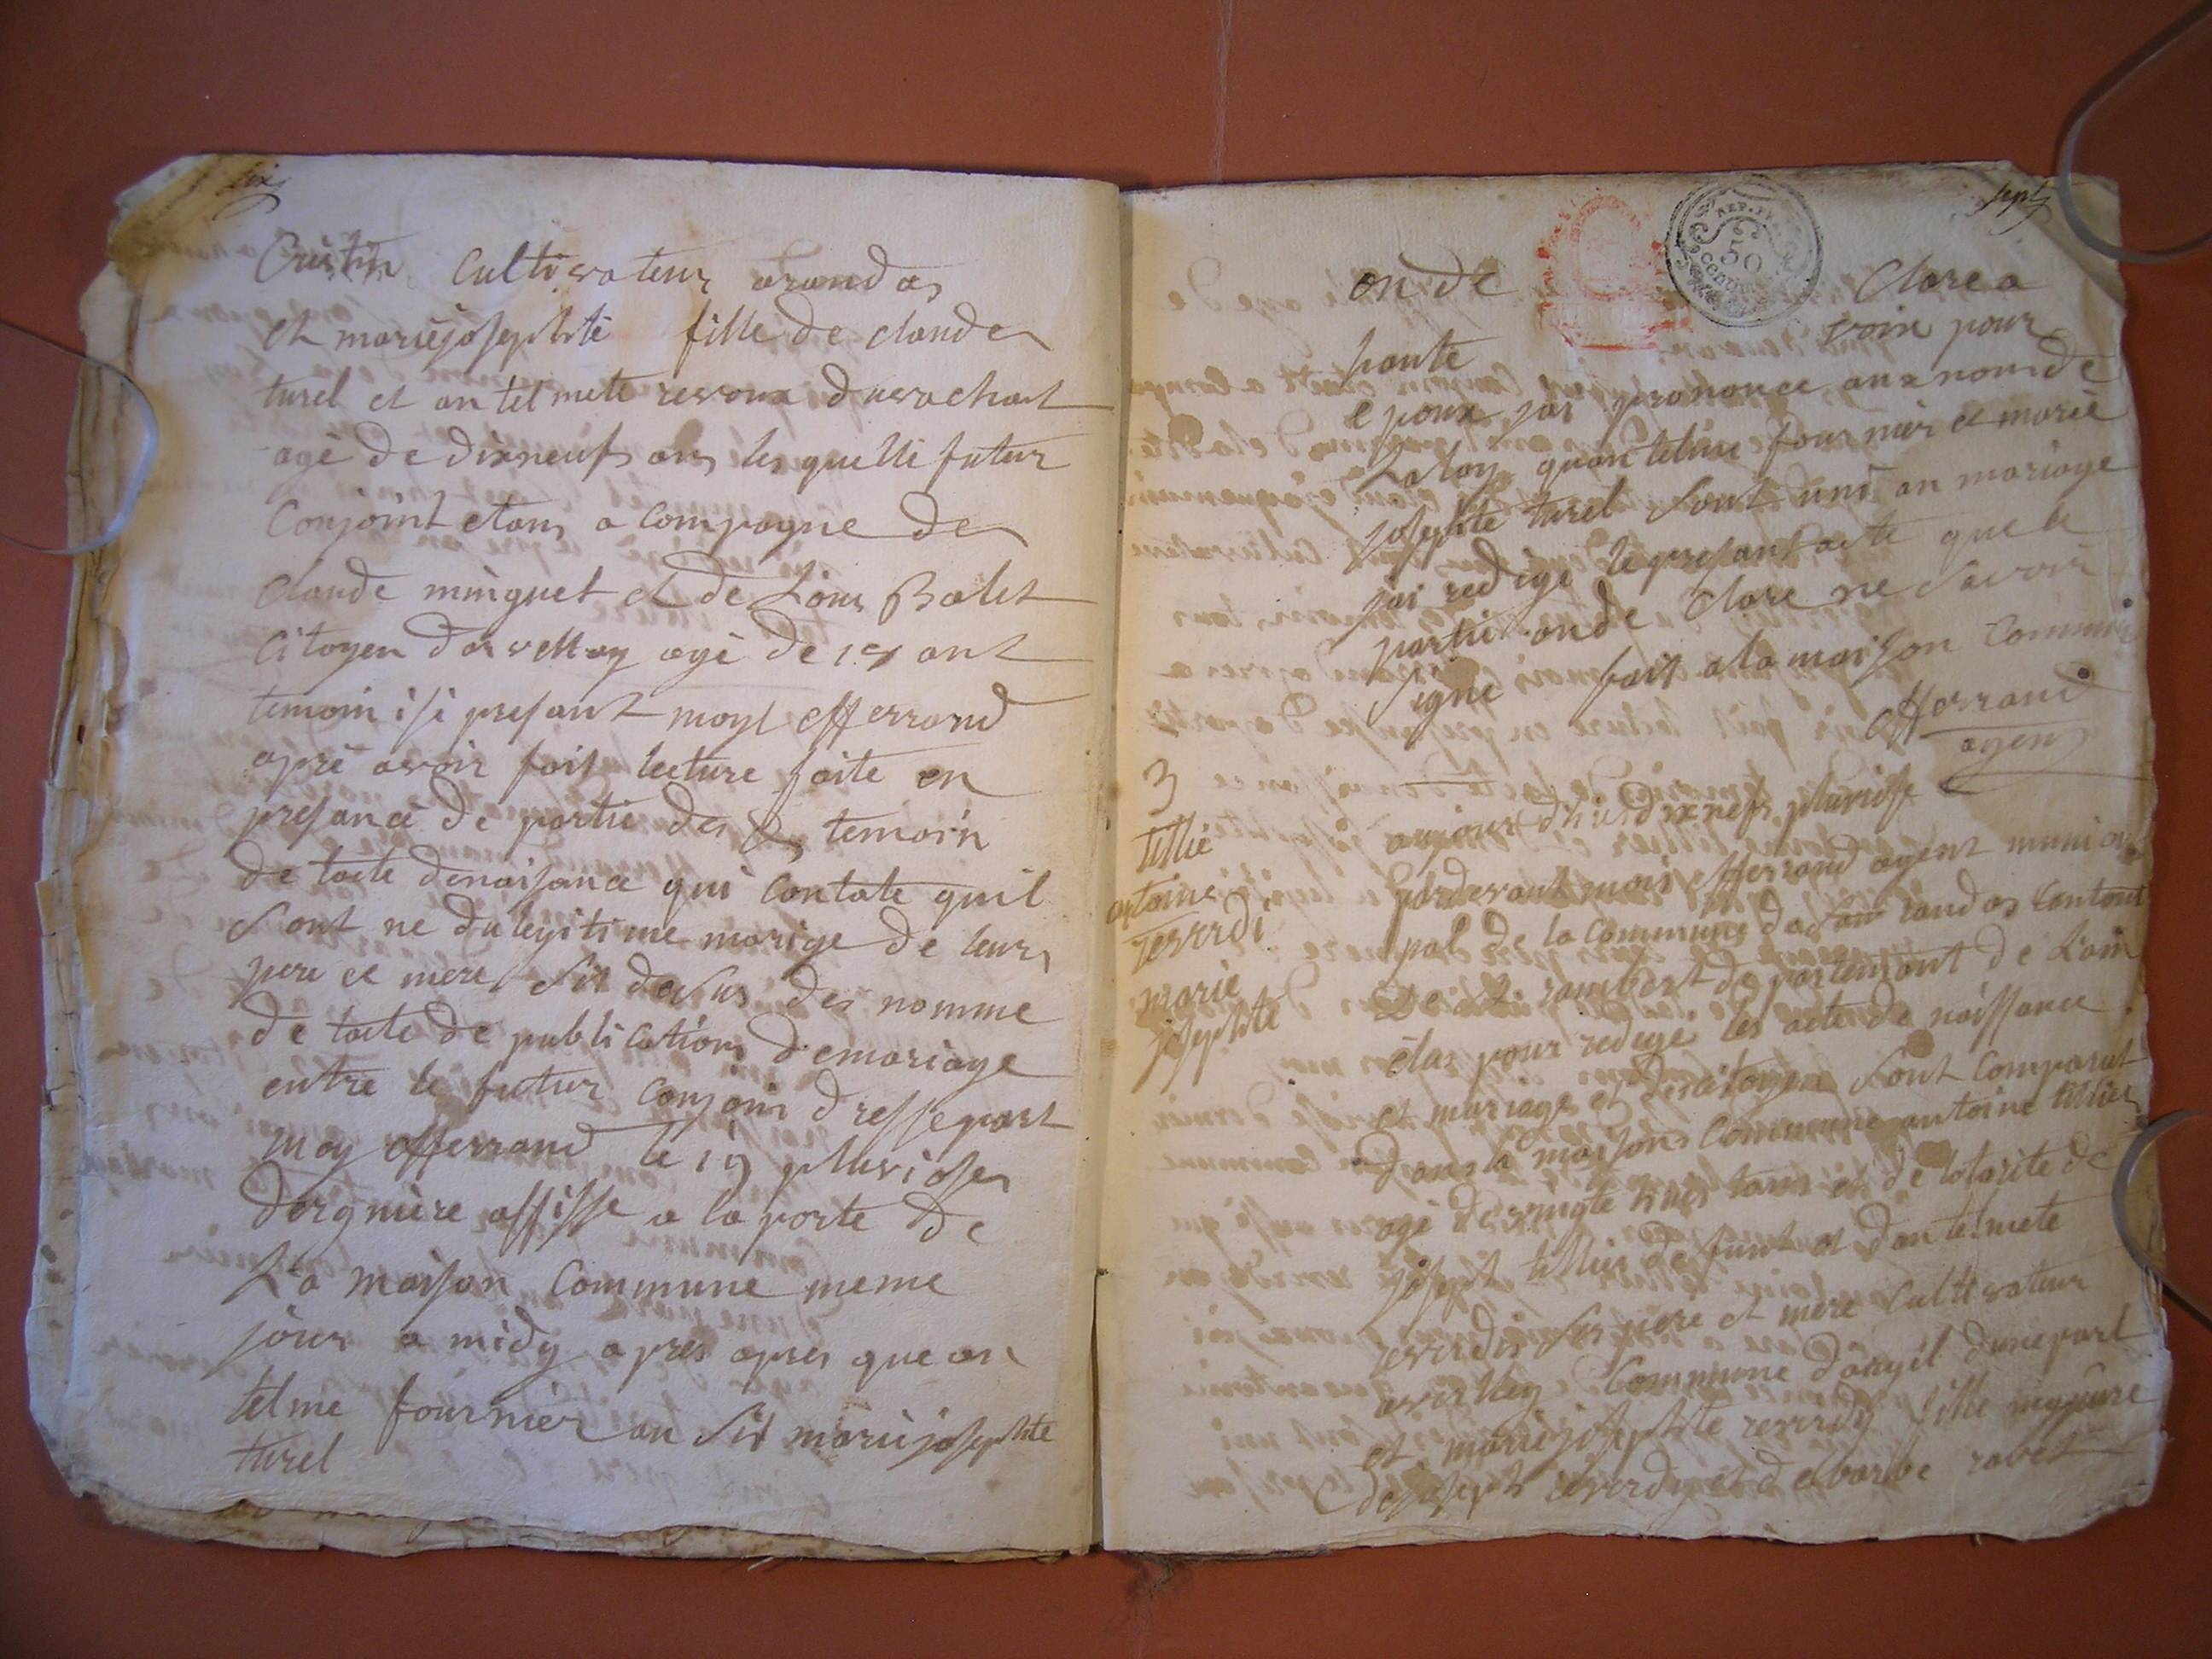 six
Cristin Cultivateur arandas
et mariejosephte fille de claude
turel et antelmete revoux d
agé de dixneufs ans lesquelle futur
Conjoint etans a compagne de
Claude minguet et de Louis Balet
Citoyen agé de ant
temoin isi present moy efferrand
apre avoir fait lecture faite en
presance de partie des temoin
de lacte denaisance qui Contate quil
sont ne du legitime marige de leurs
pere et mere sit desus des nomme
de lacte de publications demariage
entre le futur Conjoin dresse part
moy efferrand le 19 pluviose
dergniere affisse a la porte de
La maison Commune meme
jour a midy apres apres que an
telme fournier an sit mariejosephte
turel
sept
REP. FRA
50
cent
on de Clare a
haute voix pour
epoux jai prononce aux nom de
La loy quantelme fournier et marie
josephte turel sont uni an mariage
jai redige le present acte que le
partie on de Clare ne savoir
signe fait a la maison Commune
efferrand
agent
3
tillié
antoine
reverdi
marie
josephte
aujourdhui dixnefs pluviose
pardevant mois efferrand agent munici
pal de la Commune d arandas Canton
de St rambert departemant de Lain
elas pour redige les acte de naissance
et mariage et des citoyen sont Comparut
dans la maison Commune antoine tillier
agé de vingte trois ans et de
joseph tillier de funt et dantelmete
reverdi ses pere et mere Cultivateur
Commune dougil dune part
et mariejosephte reverdy fille majeure
de joseph reverdy et de barbe rabet